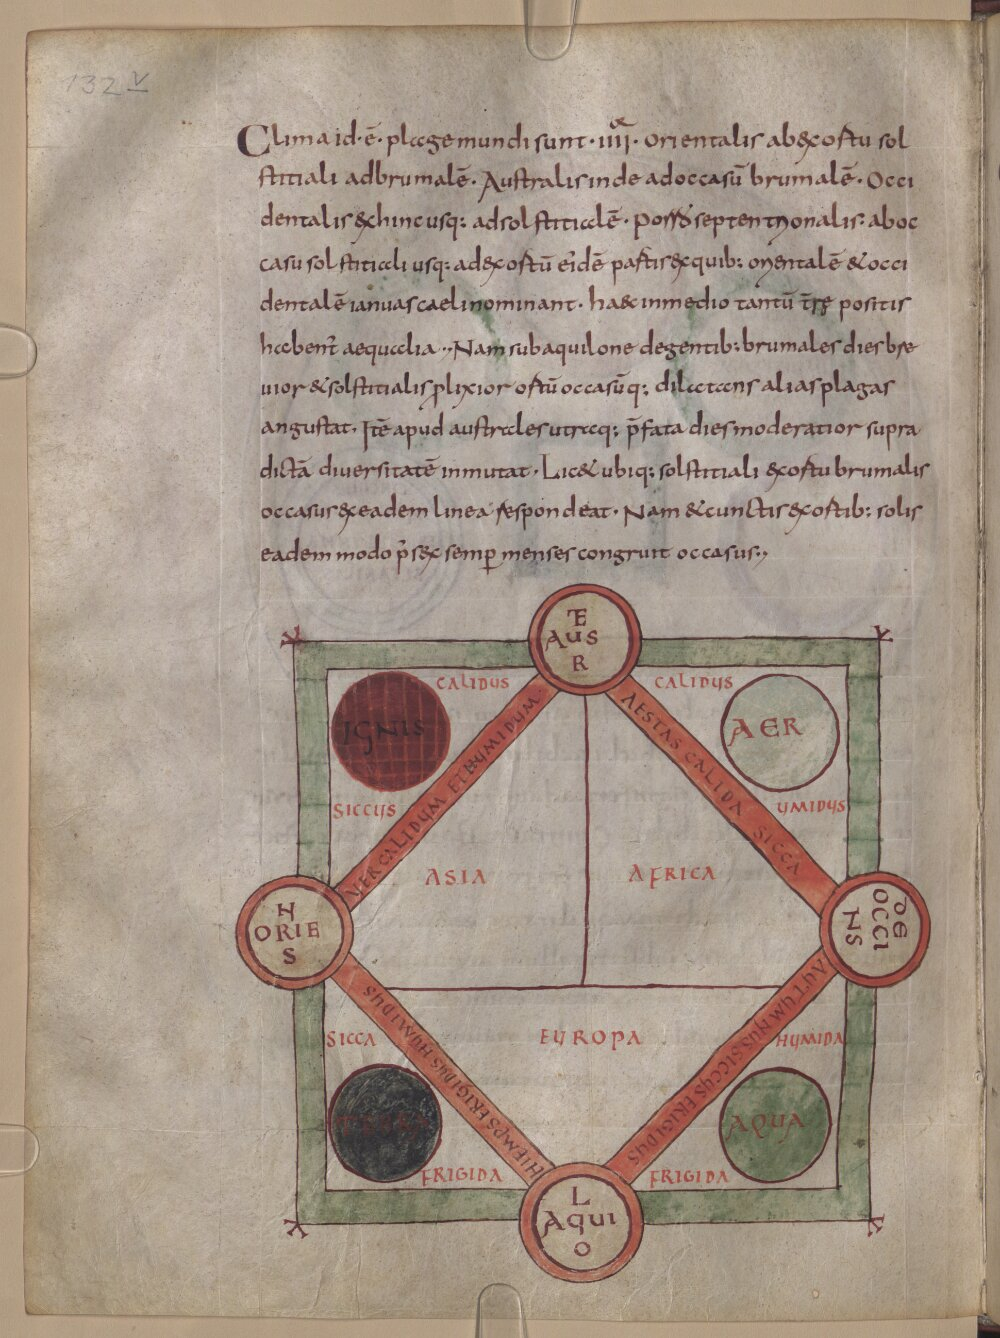 132 v
Clima id·ē· plage mundi sunt·iiii·or orientalis ab exortu sol
stitiali ad brumalē· Australis inde ad occasū brumalē· Occi
dentalis & hinc usq: ad solstitialē· septentrionalis: ab oc
casu solstitiali usq: ad exortū eidē partis ex quib: orientalē & occi
dentalē ianuas caeli nominant· in medio tantū positis
habent aequalia·,·Nam sub aquilone degentib: brumales dies bre
uior & solstitialis plixior ortū occasūq: dilatans alias plagas
angustat· Itē apud australes utraq: p̄fata dies moderatior supra
dictā diuersitatē inmutat· Lic& ubiq: solstitiali exortu brumalis
occasus ex eadem linea respondeat· Nam & cunctis exortib: solis
eadem modo p̄ sex semp menses congruit occasus·,,
TE
AUS
R
CALIDUS
CALIDUS
IGNIS
AER
SICCUS
UMIDUS
VER CALIDUM ET HUMIDUM·
AESTAS CALIDA SICCA
ASIA
AFRICA
N
ORIE
S
DE
OCCI
NS
SICCA
EUROPA
HUMIDA
HIEMPS FRIGIDUS HUMIDUS
AUTUMNUS SICCUS FRIGIDUS
TERRA
AQUA
FRIGIDA
FRIGIDA
L
AQUI
O